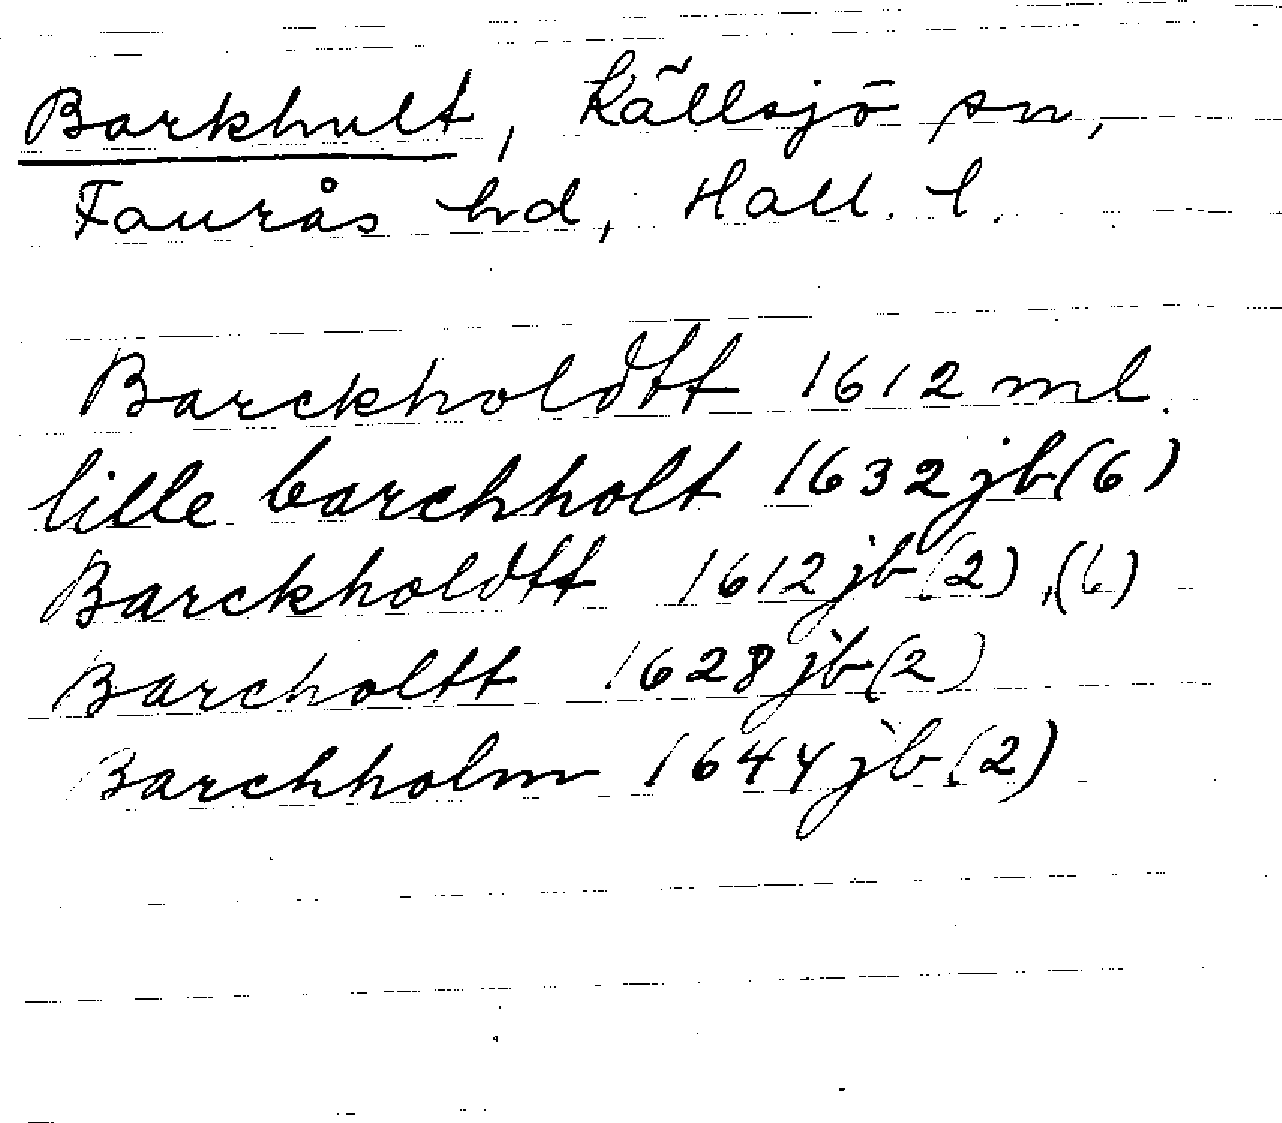 Barkhult, Källsjö sn,
Faurås hd, Hall. l.
Barckholdtt 1612 ml.
lille barchholt 1632 jb (6)
Barckholdtt 1612 jb (2), (6)
Barcholtt 1628 jb (2)
Barchholm 1644 jb (2)